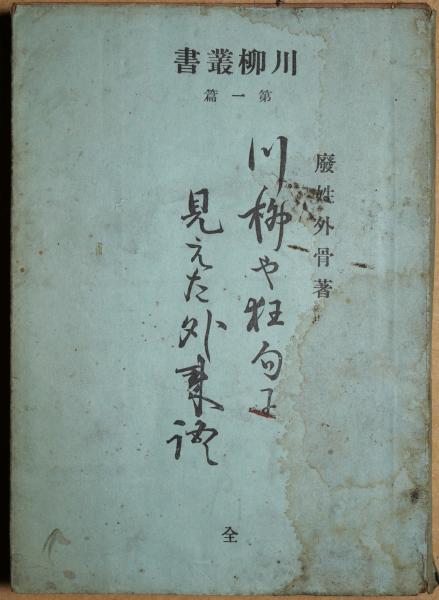 書叢柳川
篇一第
廢姓外骨著
川柳や狂句に
見えた外来語
全